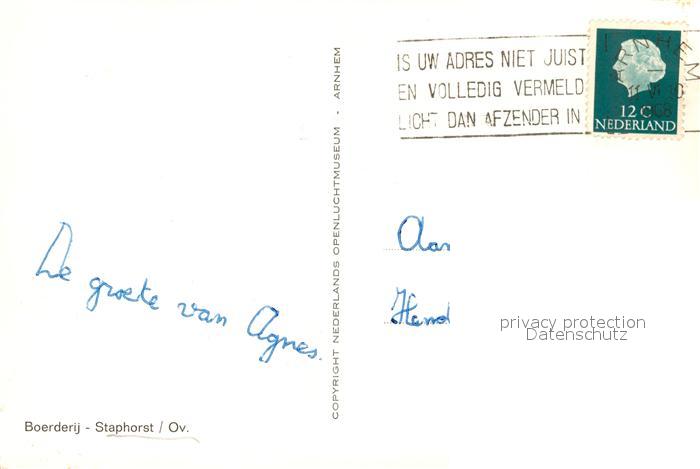 IS UW ADRES NIET JUIST
EN VOLLEDIG VERMELD
LICHT DAN AFZENDER IN
ARNHEM
12 C
NEDERLAND
COPYRIGHT NEDERLANDS OPENLUCHTMUSEUM - ARNHEM
De groete van Agnes.
Aan
privacy protection
Datenschutz
Boerderij - Staphorst / Ov.